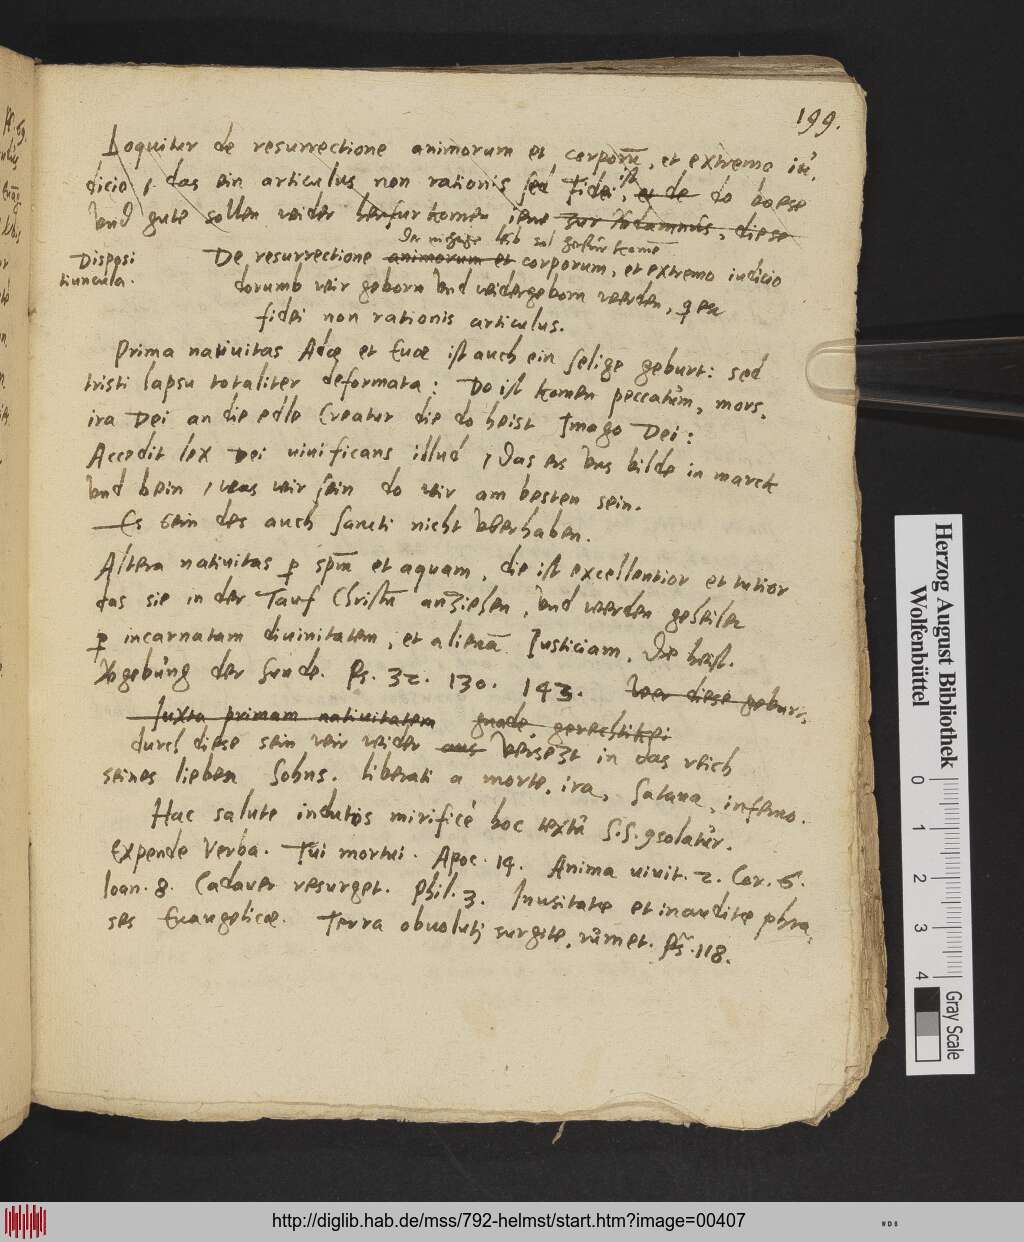 199.
Loquitur de resurrectione animorum et corporū, et extremo iu⸗
dicio, das ein articulus non rationis sed fidei, ist et de do boese
vnd gute sollen wider herfur komen, iene zur , diese
der nichtige leib sol herfur komē
Disposi
tiuncula.
De resurrectione animorum et corporum, et extremo iudicio
dorumb wir geborn vnd widergeborn werden, q̄ est
fidei non rationis articulus.
Prima natiuitas Adæ et Euæ ist auch ein selige geburt: sed
tristi lapsu totaliter deformata: Do ist komen peccatum, mors,
ira Dei an die edle Creatur die do heist Imago Dei:
Accedit lex Dei uiuificans illud, das es vns bilde in marck
vnd bein, was wir sein do wir am besten sein.
Es sein des auch sancti nicht vberhaben.
Altera natiuitas p spm̄ et aquam, die ist excellentior et tutior
das sie in der Tauf Christū anziehen, vnd werden geheilet
p incarnatam diuinitatem, et alienā Iusticiam, die heist
Vergebung der sunde. Ps. 32. 130. 143. Wer diese geburt,
Iuxta primam natiuitatem gnade, gerechtikei
durch diese sein wir wider aus versetzt in das reich
seines lieben Sohns. liberati a morte, ira, Satana, inferno.
Hac salute indutos mirificè hoc textū S.S. gsolatur.
Expende verba. Tui mortui. Apoc. 14. Anima uiuit. 2. Cor. 5.
Ioan. 8. Cadauer resurget. Phil. 3. Inusitatæ et inauditæ phra⸗
ses Euangelicæ. Terra obuoluti surgite, . Ps. 118.
Herzog August Bibliothek
Wolfenbüttel
0 1 2 3 4
Gray Scale
http://diglib.hab.de/mss/792-helmst/start.htm?image=00407
WDB